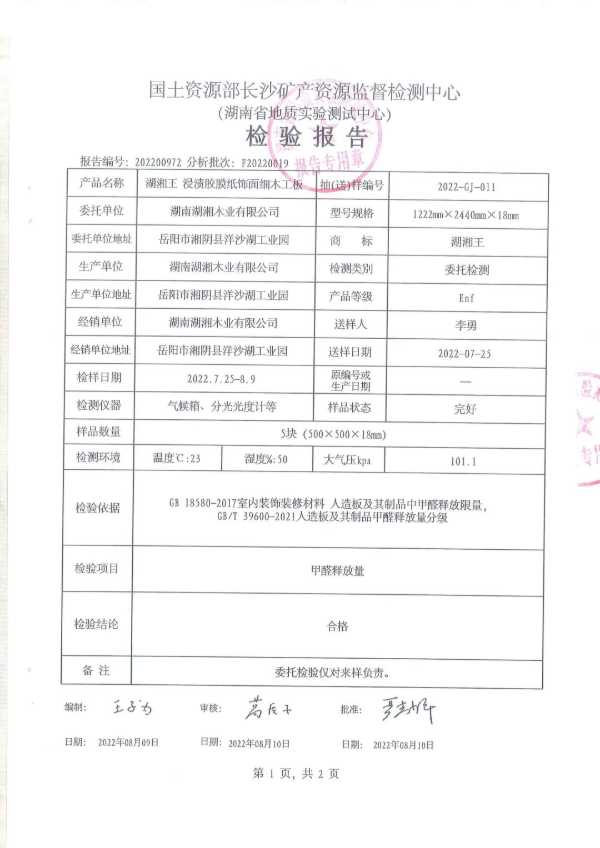 国土资源部长沙矿产资源监督检测中心
(湖南省地质实验测试中心)
检验报告
报告专用章
报告编号: 202200972 分析批次: F20220819
产品名称 湖湘王 浸渍胶膜纸饰面细木工板 抽(送)样编号 2022-GJ-011
委托单位 湖南湖湘木业有限公司 型号规格 1222mm×2440mm×18mm
委托单位地址 岳阳市湘阴县洋沙湖工业园 商 标 湖湘王
生产单位 湖南湖湘木业有限公司 检测类别 委托检测
生产单位地址 岳阳市湘阴县洋沙湖工业园 产品等级 Enf
经销单位 湖南湖湘木业有限公司 送样人 李勇
经销单位地址 岳阳市湘阴县洋沙湖工业园 送样日期 2022-07-25
检样日期 2022.7.25-8.9 原编号或生产日期 —
检测仪器 气候箱、分光光度计等 样品状态 完好
样品数量 5块 (500×500×18mm)
检测环境 温度℃:23 湿度%:50 大气压kpa 101.1
检验依据 GB 18580-2017室内装饰装修材料 人造板及其制品中甲醛释放限量,
GB/T 39600-2021人造板及其制品甲醛释放量分级
检验项目 甲醛释放量
检验结论 合格
备 注 委托检验仅对来样负责。
编制: 审核: 批准:
日期: 2022年08月09日 日期: 2022年08月10日 日期: 2022年08月10日
第 1 页, 共 2 页